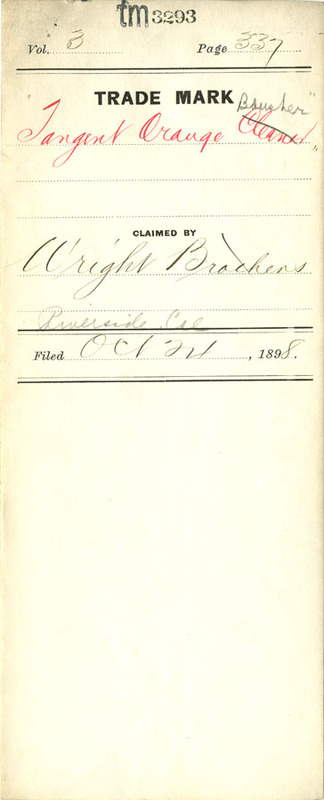 tm 3293
Vol. 3 Page 337
TRADE MARK Brusher"
"Tangent Orange Cleaner"
CLAIMED BY
Wright Brothers
Riverside, Cal
Filed Oct 24, 1898.